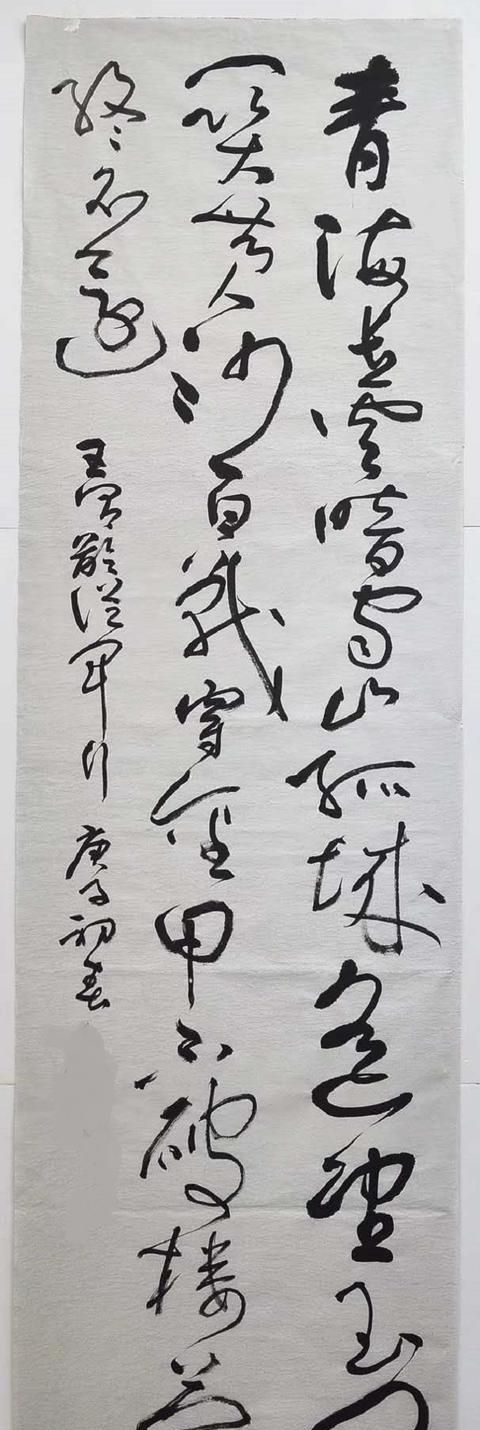 青海長雲暗雪山孤城遥望玉门
關黄沙百戰穿金甲不破楼兰
終不還
王昌齡從軍行 庚子初春